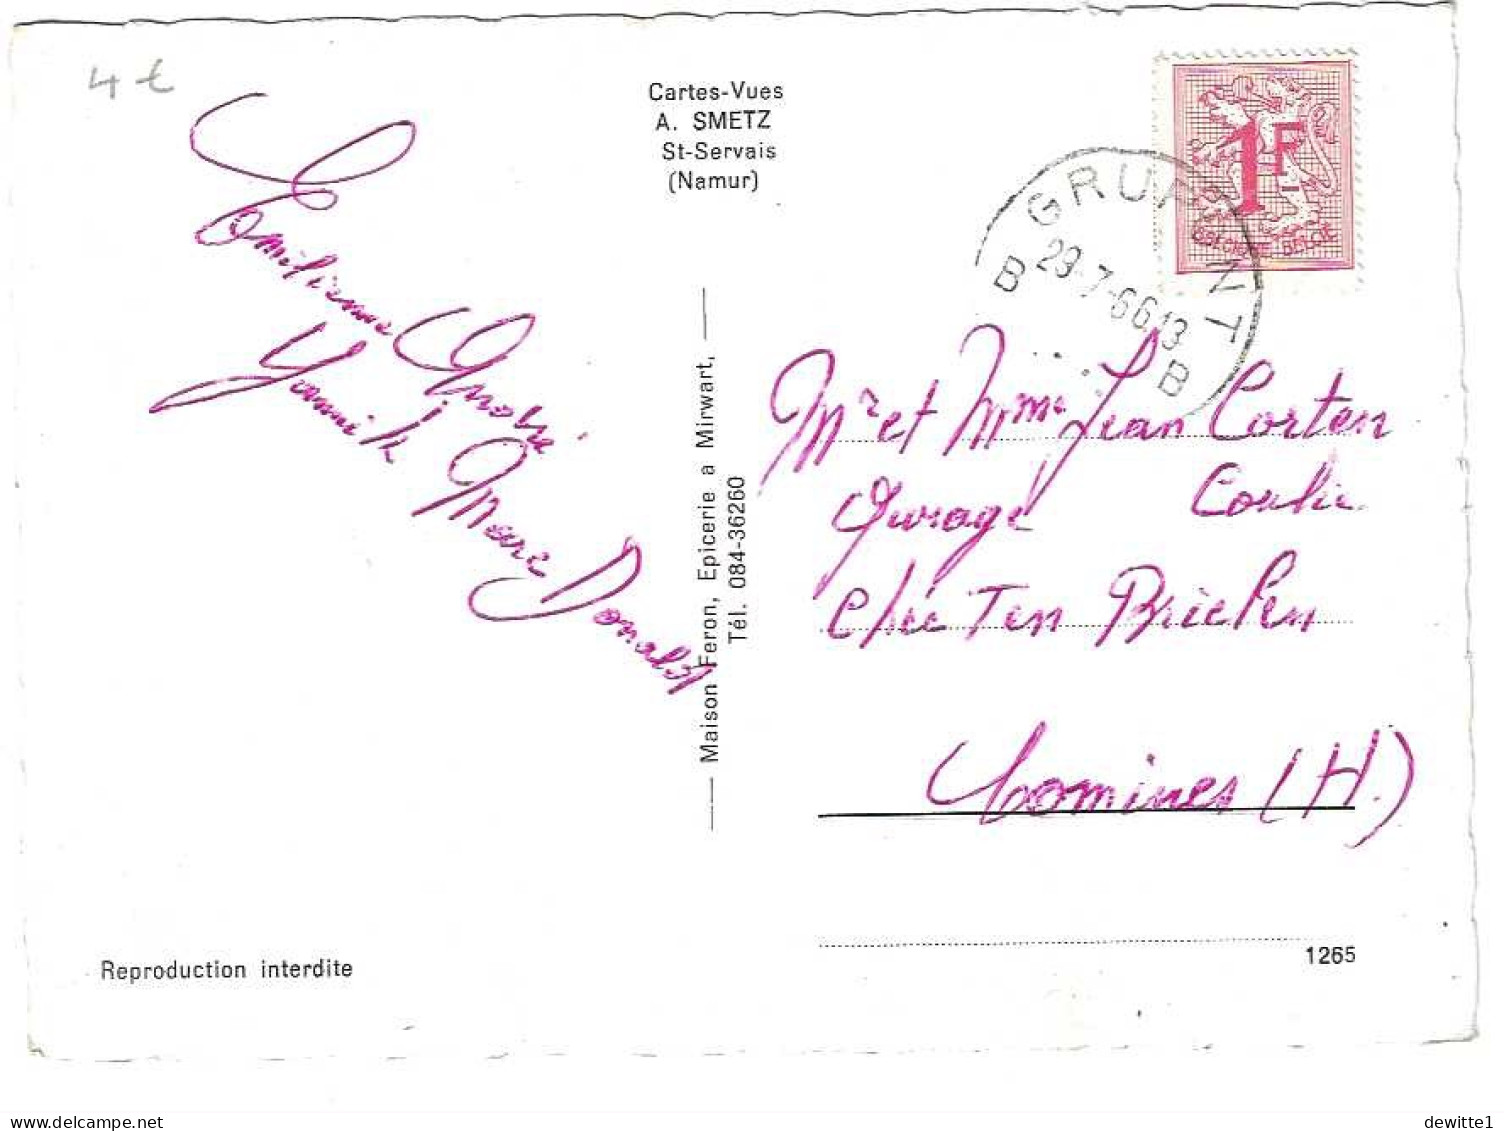 4 €
Cartes-Vues
A. SMETZ
St-Servais
(Namur)
1F
BELGIQUE BELGIË
GRUPONT
29-7-66 13
B B
Emilienne André
Yannik Marc Donald
Maison Feron, Epicerie a Mirwart,
Tél. 084-36260
Mr et Mme Jean Corten
Garage
Chée Ten Brielen
Comines (H.)
Reproduction interdite
1265
delcampe.net
dewitte1